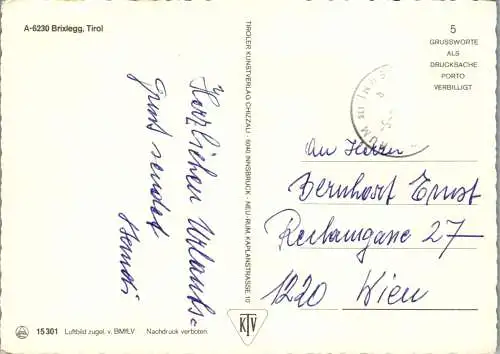 A-6230 Brixlegg, Tirol
Herzlichen Urlaubs=
Gruß sendet
5
GRUSSWORTE
ALS
DRUCKSACHE
PORTO
VERBILLIGT
An Herrn
Bernhart Ernst
27
1220 Wien
TIROLER KUNSTVERLAG CHIZZALI · 6040 INNSBRUCK - NEU-RUM, KAPLANSTRASSE 10
KTV
15 301 Luftbild zugel. v. BMfLV. Nachdruck verboten.